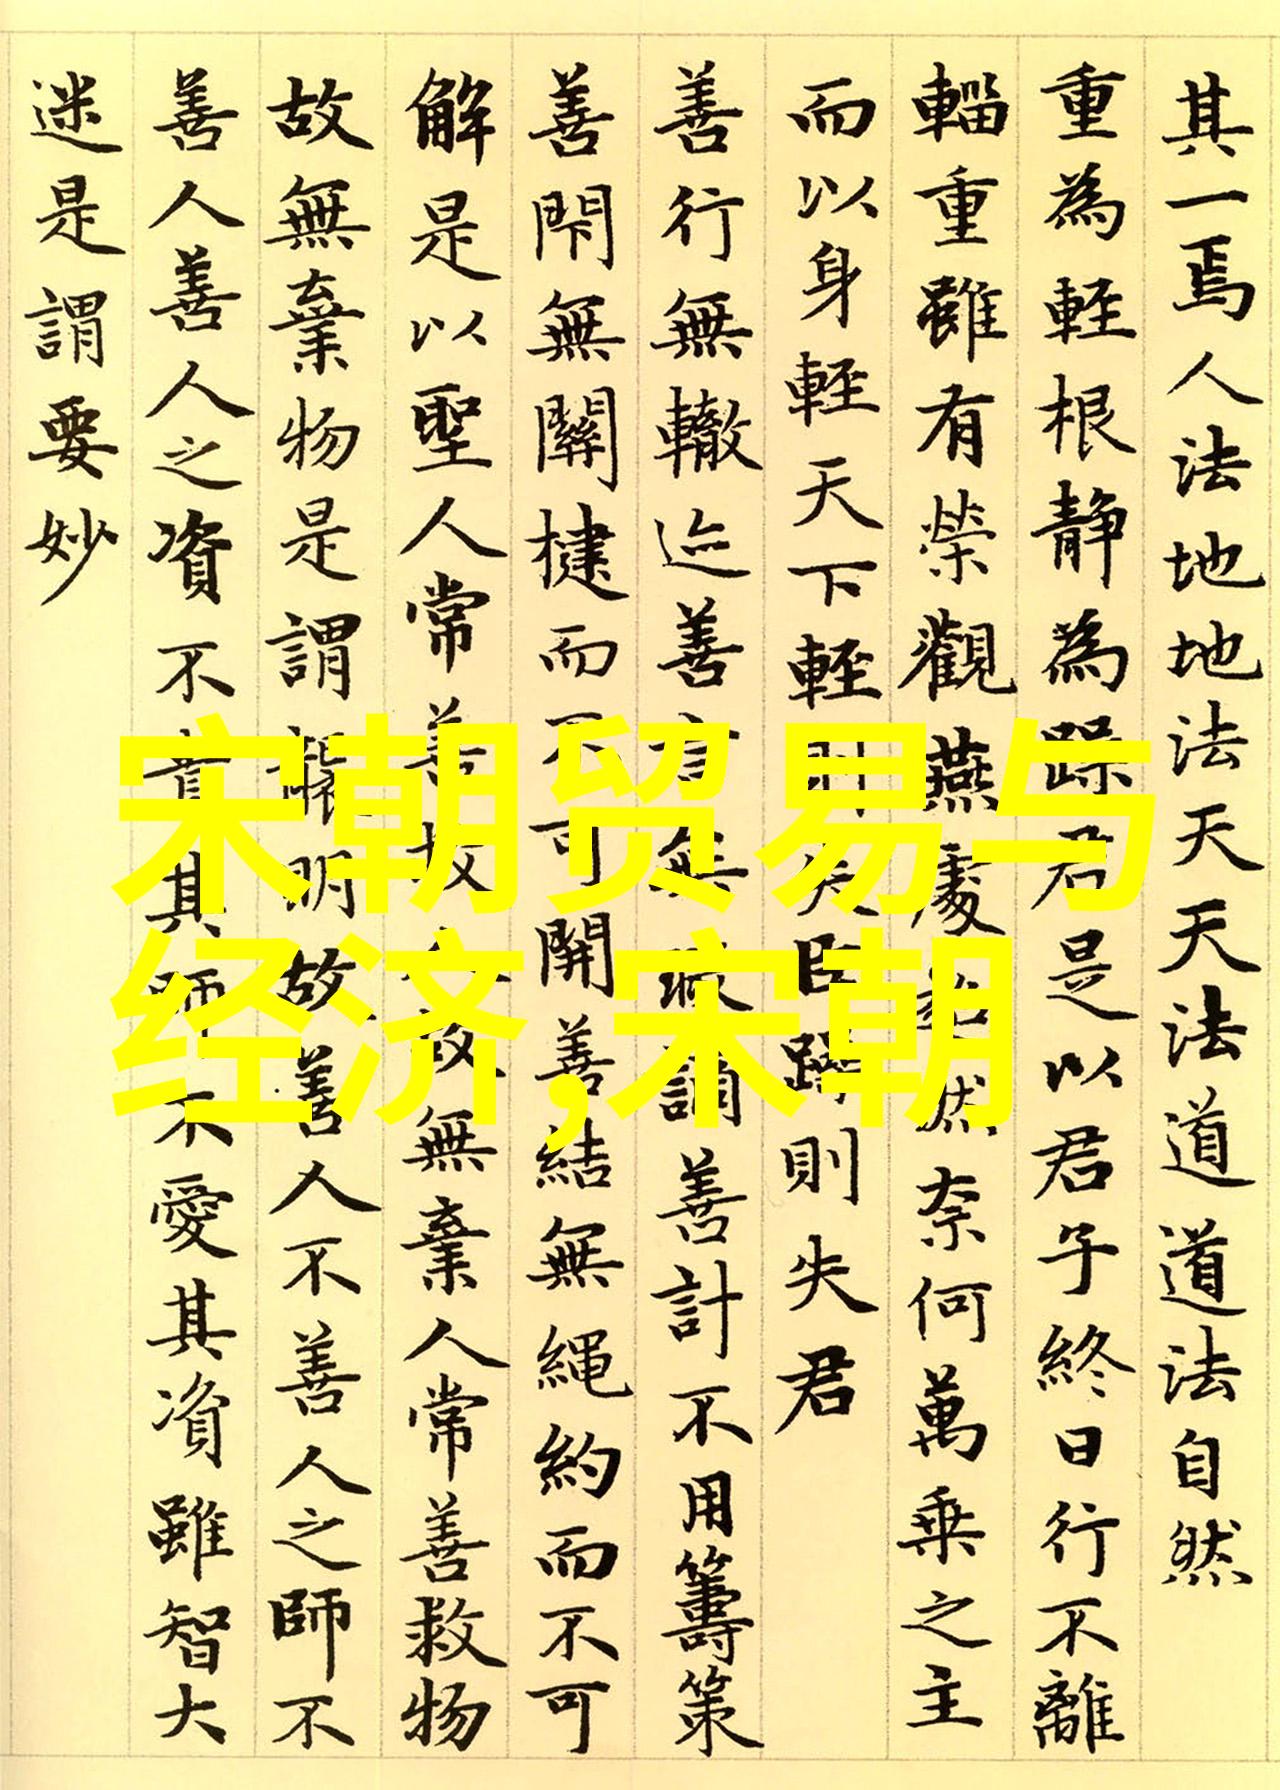 其一焉人法地地法天天法道道法自然
重為輕根靜為躁君是以君子終日行不離
輜重雖有榮觀燕處超然奈何萬乘之主
而以身輕天下輕則失臣躁則失君
善行無轍迹善言無瑕謫善計不用籌策
善閇無關楗而不可開善結無繩約而不可
解是以聖人常善救人故無棄人常善救物
故無棄物是謂襲明故善人不善人之師不
善人善人之資不貴其師不愛其資雖智大
迷是謂要妙
宋朝贸易与
经济,宋朝